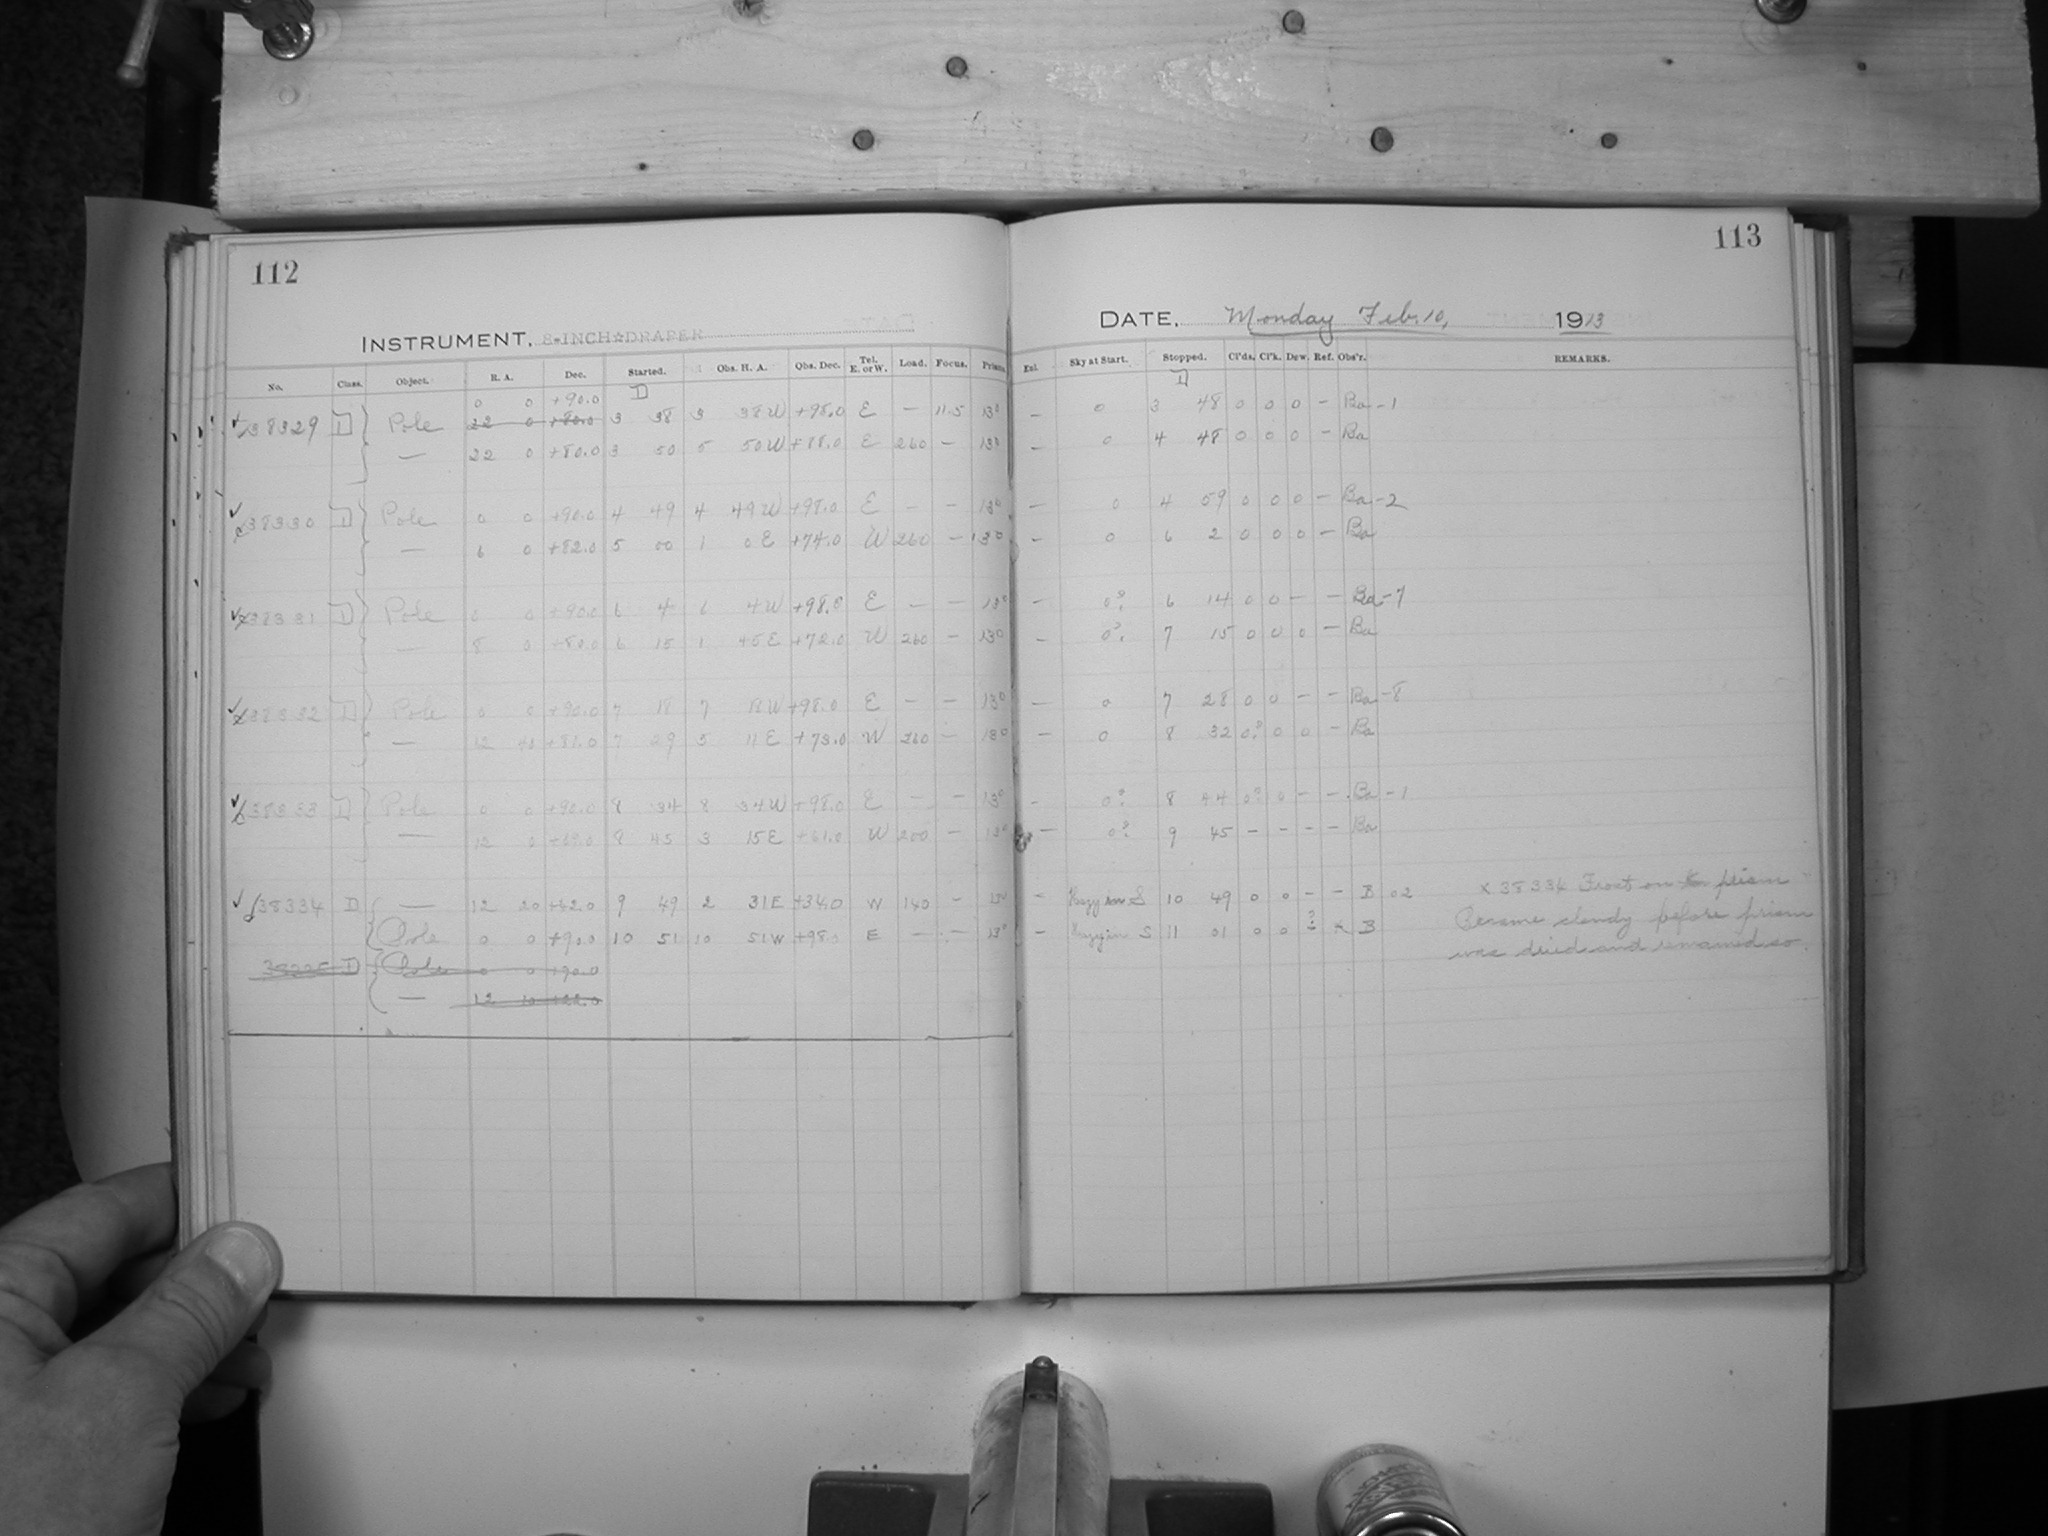 112
113
INSTRUMENT, 8-INCH☆DRAPER
DATE, Monday Feb. 10, 1913
No. Class. Object. R. A. Dec. Started. Obs. H. A. Obs. Dec. Tel. E. or W. Load. Focus. Prism
Ext. Sky at Start. Stopped. Cl'ds. Cl'k. Dew. Ref. Obs'r. REMARKS.
0 0 +90.0 D D
38329 D Pole 22 0 +80.0 3 38 3 38 W +98.0 E — 11.5 13° — 0 3 48 0 0 0 — Ba -1
— 22 0 +80.0 3 50 5 50 W +88.0 E 260 — 13° — 0 4 48 0 0 0 — Ba
38330 D Pole 0 0 +90.0 4 49 4 49 W +98.0 E — — 13° — 0 4 59 0 0 0 — Ba -2
— 6 0 +82.0 5 00 1 0 E +74.0 W 260 — 13° — 0 6 2 0 0 0 — Ba
38331 D Pole 0 0 +90.0 6 4 6 4 W +98.0 E — — 13° — 0? 6 14 0 0 — — Ba -7
— 8 0 +80.0 6 15 1 45 E +72.0 W 260 — 13° — 0? 7 15 0 0 0 — Ba
38332 D Pole 0 0 +90.0 7 18 7 18 W +98.0 E — — 13° — 0 7 28 0 0 — — Ba -8
— 12 +81.0 7 29 5 11 E +73.0 W 260 — 13° — 0 8 32 0? 0 0 — Ba
38333 D Pole 0 0 +90.0 8 34 8 34 W +98.0 E — — 13° — 0? 8 44 0? 0 — — Ba -1
— 12 0 +69.0 8 45 3 15 E +61.0 W 200 — 13° — 0? 9 45 — — — — Ba
38334 D — 12 20 +42.0 9 49 2 31 E +34.0 W 140 — 13° — Hazy in S 10 49 0 0 — — B 02 x 38334 Frost on prism
Pole 0 0 +90.0 10 51 10 51 W +98.0 E — — 13° — Hazy in S 11 01 0 0 ? x B Became cloudy before prism
was dried and remained so.
D Pole 0 0 +90.0
— 12 10 +22.0